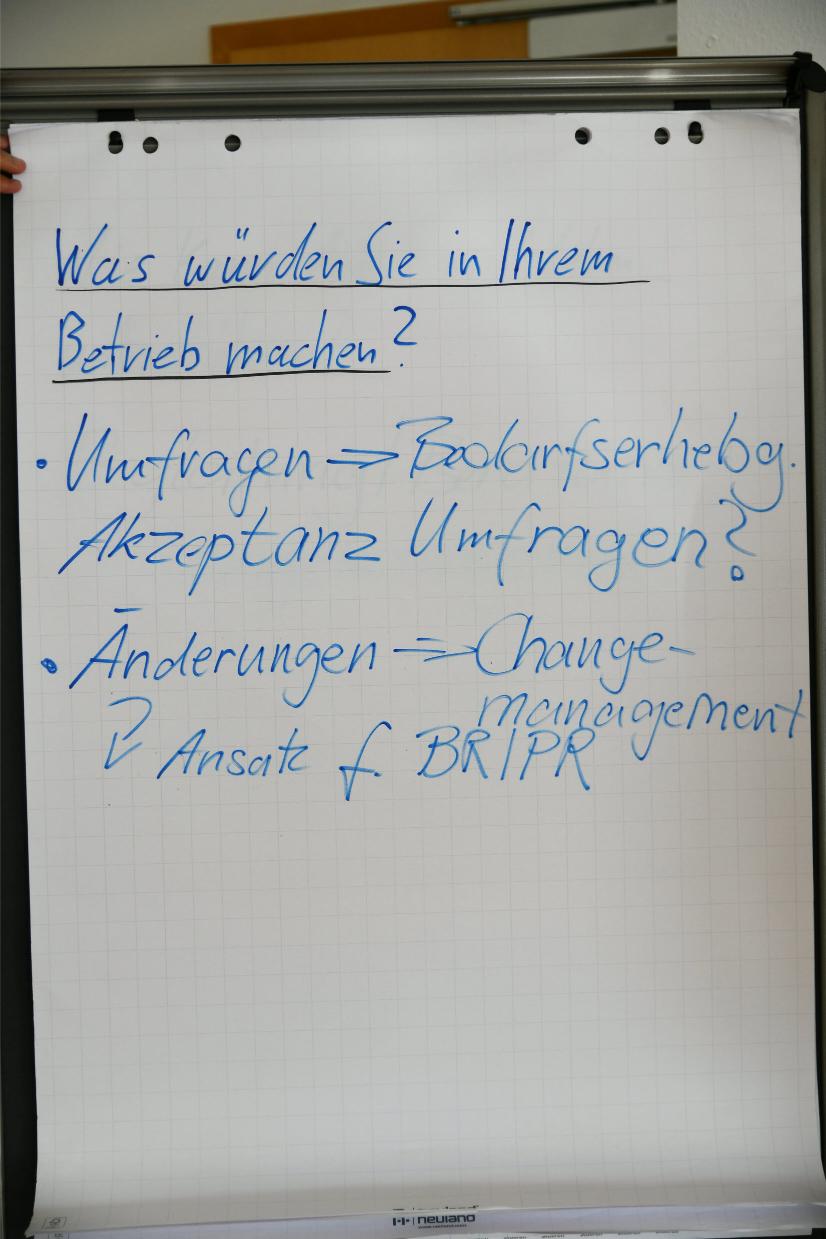 Was würden Sie in Ihrem
Betrieb machen?
• Umfragen ⇒ Bedarfserhebg.
Akzeptanz Umfragen?
• Änderungen ⇒ Change-
management
? Ansatz f. BR/PR
neuland